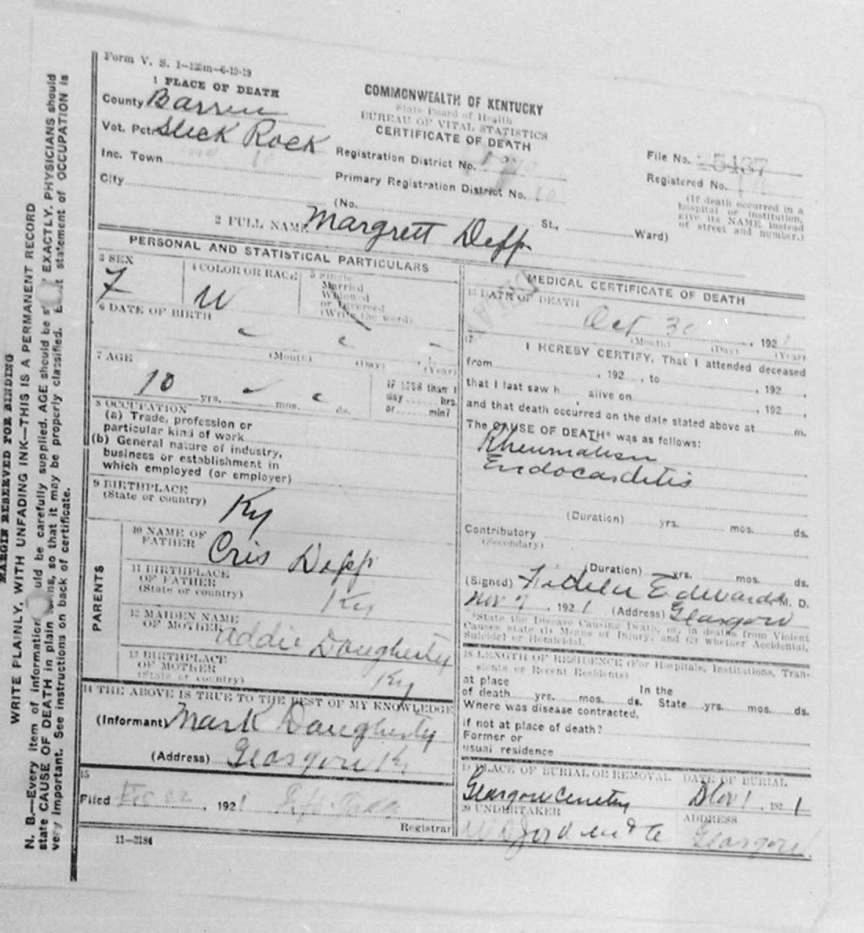 Form V. S. 1-125m-6-19-19
1 PLACE OF DEATH
County Barren
Vot. Pct. Slick Rock
Inc. Town
City
COMMONWEALTH OF KENTUCKY
State Board of Health
BUREAU OF VITAL STATISTICS
CERTIFICATE OF DEATH
Registration District No.
Primary Registration District No.
(No. St., Ward)
File No. 25437
Registered No.
(If death occurred in a
hospital or institution,
give its NAME instead
of street and number.)
2 FULL NAME Margrett Depp
PERSONAL AND STATISTICAL PARTICULARS
3 SEX
F
4 COLOR OR RACE
W
5 Single
Married
Widowed
or Divorced
(Write the word)
6 DATE OF BIRTH
(Month) (Day) (Year)
7 AGE
10 yrs. mos. ds.
If LESS than 1
day hrs.
or min?
8 OCCUPATION
(a) Trade, profession or
particular kind of work
(b) General nature of industry,
business or establishment in
which employed (or employer)
9 BIRTHPLACE
(State or country)
Ky
PARENTS
10 NAME OF
FATHER
Cris Depp
11 BIRTHPLACE
OF FATHER
(State or country)
Ky
12 MAIDEN NAME
OF MOTHER
Addie Daugherty
13 BIRTHPLACE
OF MOTHER
(State or country)
Ky
14 THE ABOVE IS TRUE TO THE BEST OF MY KNOWLEDGE
(Informant) Mark Daugherty
(Address) Glasgow Ky
15
Filed , 1921
Registrar
11-3184
MEDICAL CERTIFICATE OF DEATH
16 DATE OF DEATH
Oct 30 , 1921
(Month) (Day) (Year)
17
I HEREBY CERTIFY, That I attended deceased
from , 192 , to , 192 ,
that I last saw h alive on , 192 ,
and that death occurred on the date stated above at m.
The CAUSE OF DEATH* was as follows:
Rheumatism
Endocarditis
(Duration) yrs. mos. ds.
Contributory
(Secondary)
(Duration) yrs. mos. ds.
(Signed) Edwards M. D.
Nov 7 , 1921 (Address) Glasgow
*State the Disease Causing Death, or, in deaths from Violent
Causes state (1) Means of Injury; and (2) whether Accidental,
Suicidal or Homicidal.
18 LENGTH OF RESIDENCE (For Hospitals, Institutions, Tran-
sients or Recent Residents)
At place In the
of death yrs. mos. ds. State yrs. mos. ds.
Where was disease contracted,
if not at place of death?
Former or
usual residence
19 PLACE OF BURIAL OR REMOVAL DATE OF BURIAL
Glasgow Cemetery Nov 1 , 1921
20 UNDERTAKER ADDRESS
Glasgow
MARGIN RESERVED FOR BINDING
WRITE PLAINLY, WITH UNFADING INK—THIS IS A PERMANENT RECORD
N. B.—Every item of information should be carefully supplied. AGE should be EXACTLY. PHYSICIANS should
state CAUSE OF DEATH in plain terms, so that it may be properly classified. statement of OCCUPATION is
very important. See instructions on back of certificate.